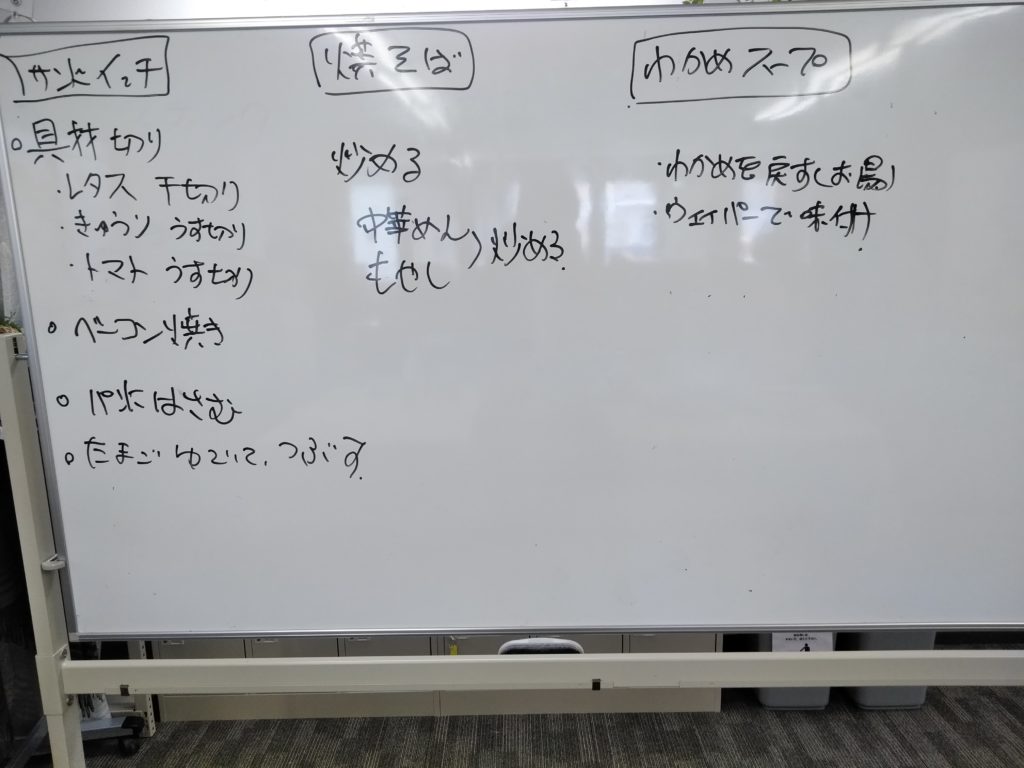 サンドイッチ
○具材切り
・レタス 千切り
・きゅうり うす切り
・トマト うす切り
○ベーコン焼き
○パンにはさむ
○たまご ゆでいて、つぶす
焼そば
炒める
中華めん
もやし
炒める
わかめスープ
・わかめを戻す(お湯)
・ウェイパーで味付け